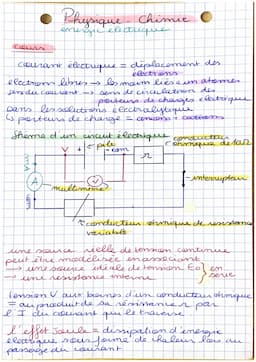 Physique - Chimie
énergie électrique
cours
courant électrique = déplacement des
électrons
électrons libres → les moins liés aux atomes
sens du courant → sens de circulation des
porteurs de charges électrique
Dans les solutions électrolytiques
↳ porteurs de charge = anions + cations
schéma d'un circuit électrique
conducteur
ohmique de
V + pile
com
r
A
V
interrupteur
multimètre
conducteur ohmique de résistance
variable
une source réelle de tension continue
peut être modélisée en associant
→ une source idéale de tension E0
→ une résistance interne
en
série
tension V aux bornes d'un conducteur ohmique
= au produit de sa résistance r par
l'I du courant qui le traverse
l'effet Joule = dissipation d'énergie
électrique sous forme de chaleur lors du
passage du courant